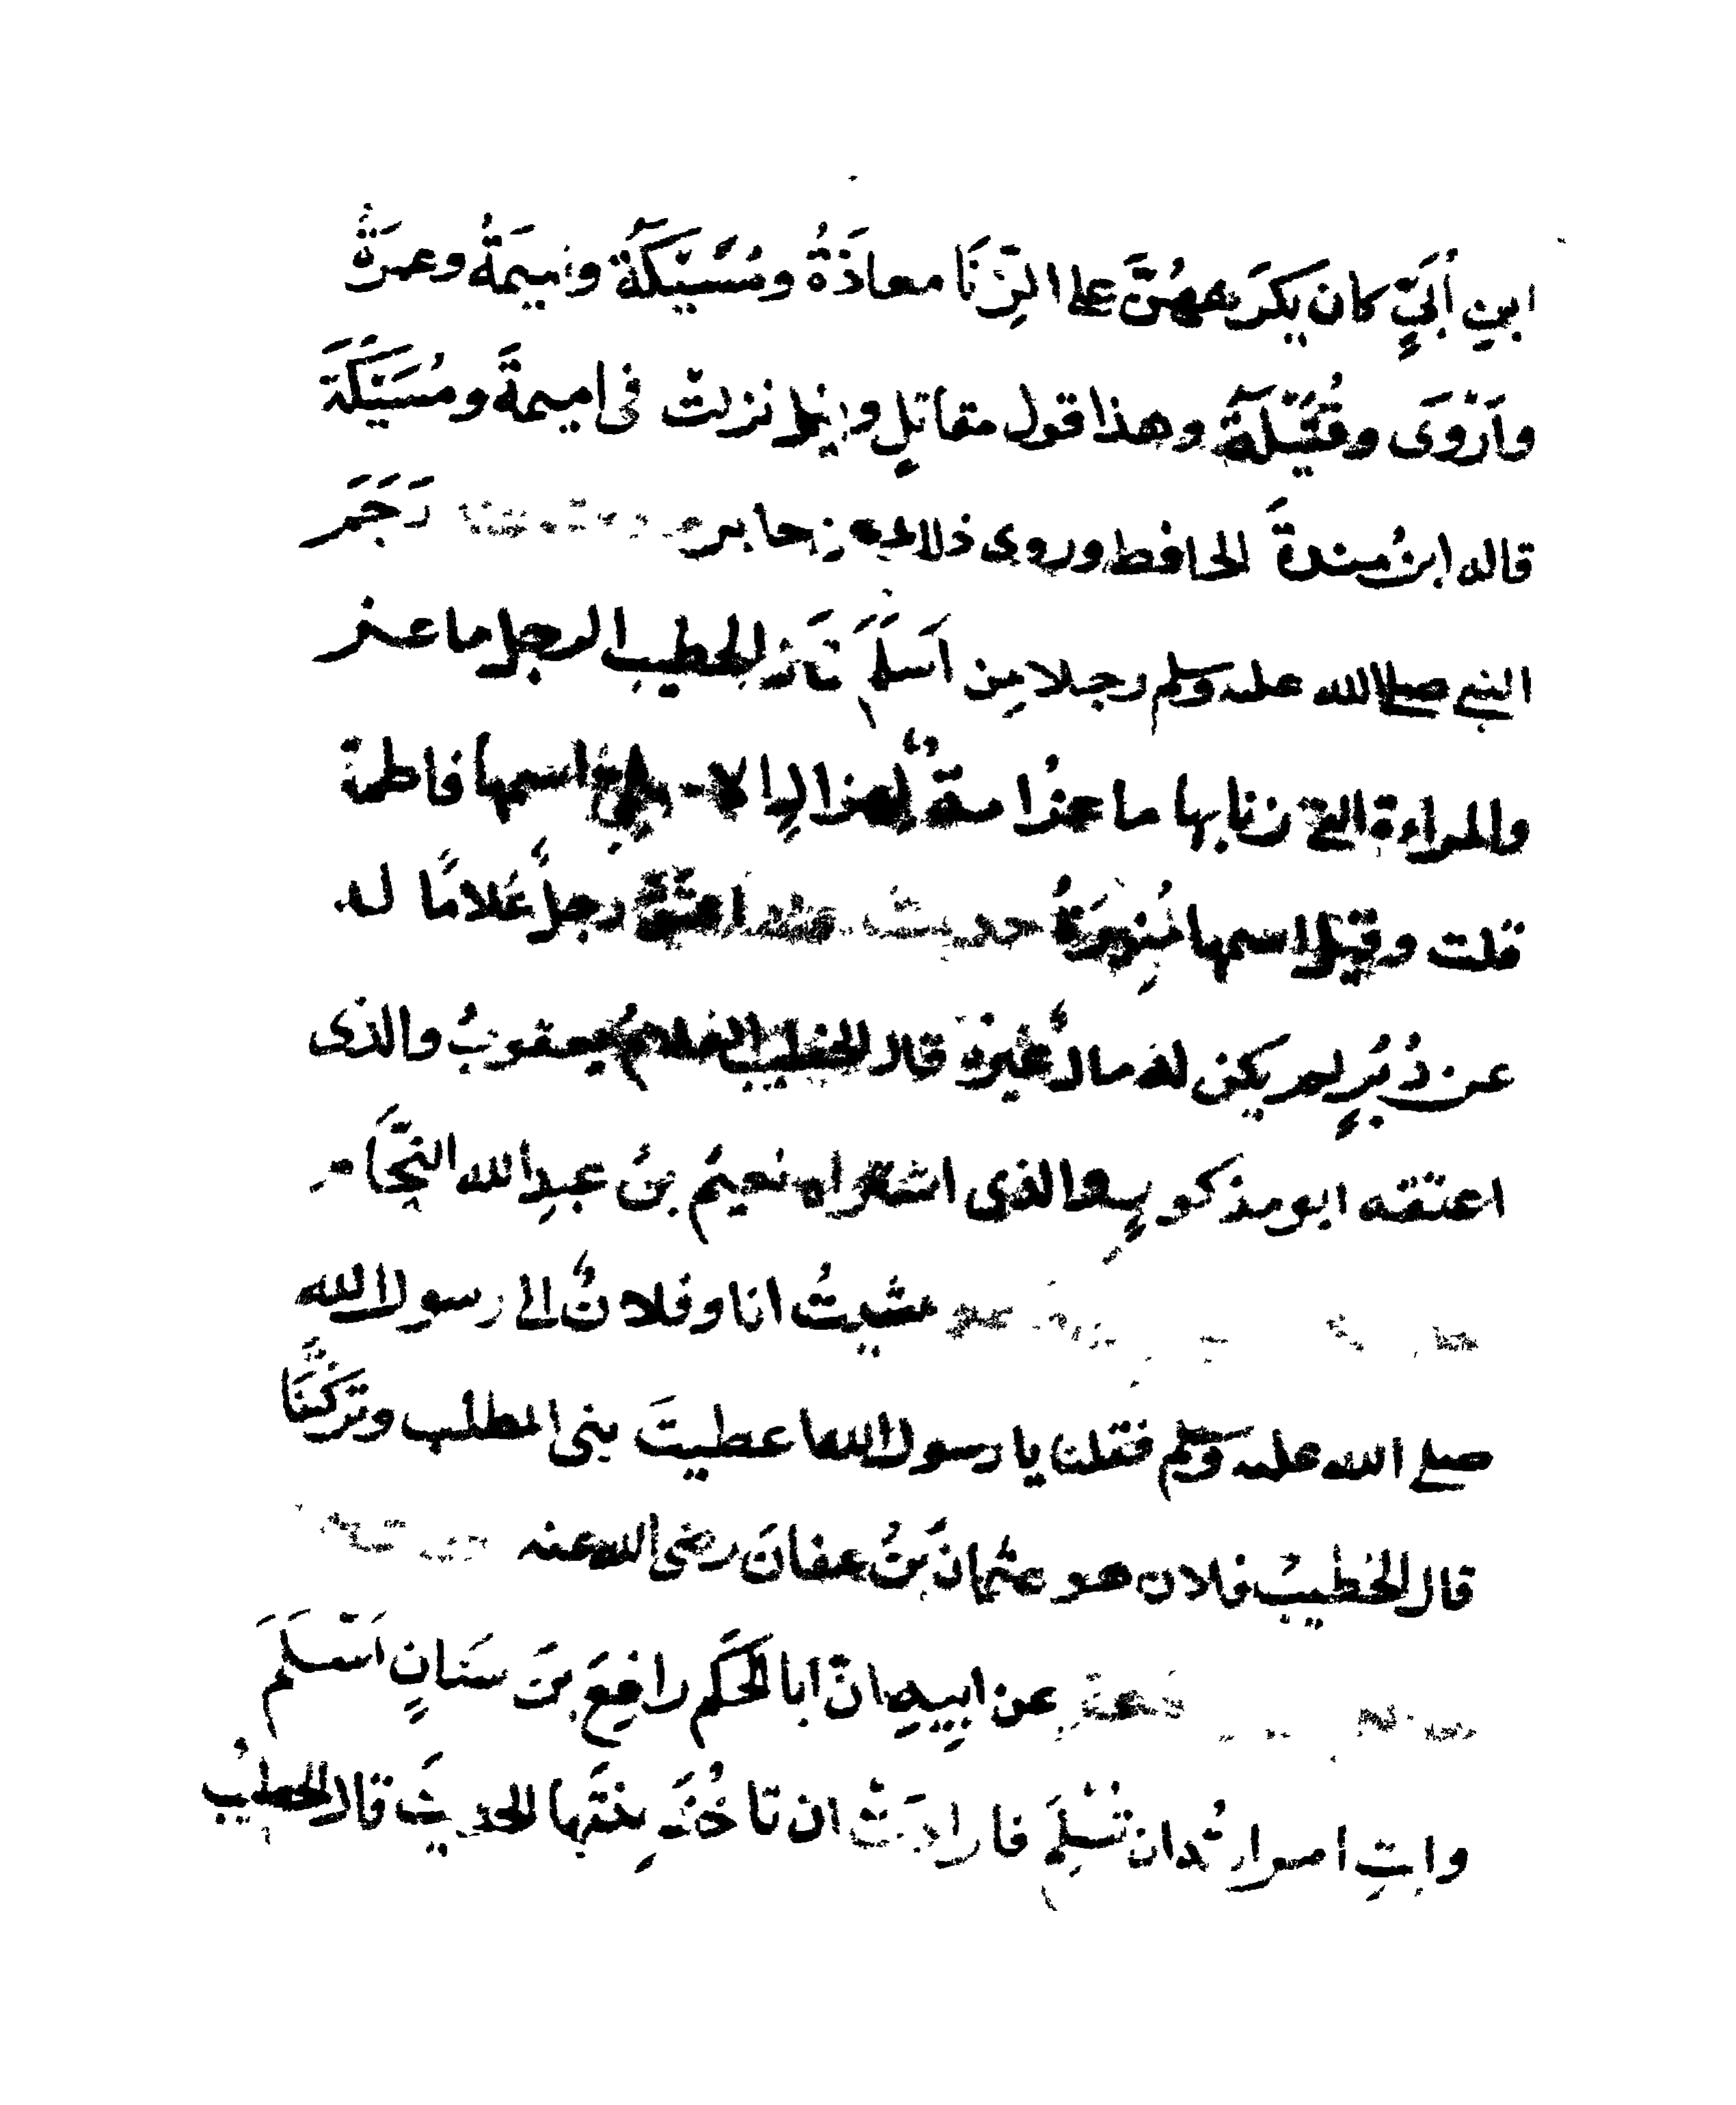 ابنِ أُبَيٍّ كان يكرَههُنَّ على الزِّنَا معاذَةُ ومُسَيْكَةُ واميمَةُ وعمرَةُ
وأَرْوَى وقُتَيْلَةُ وهذا قول مقاتلٍ وانما نزلتْ فى اميمةَ ومُسَيْكَةَ
قاله ابنُ مندةَ الحافظ وروى ذلك عن جابر رَجَمَ
النبى صلى الله عليه وسلم رجلا مِن أَسْلَمَ قَالَ الخطيب الرجل ماعز
والمراءة التى زنا بها ماعز امةٌ لهزال اسمها فاطمة
قلت وقيل اسمها مُنِيرَةُ حديث اعتَقَ رجلٌ غلامًا له
عن دُبُرٍ لم يكن لهُ مالٌ غيرُهُ قال الخطيب الغلامُ يعقوبُ والذى
اعتقه ابو مذكورٍ والذى اشتراه نعيمُ بنُ عبدِالله النَّحَّام
مشيتُ انا وفلانٌ الى رسول الله
صلى الله عليه وسلم فقلنا يا رسول الله اعطيتَ بنى المطلب وتَرَكْتَنَا
قال الخطيبُ فلان هو عثمانَ بنُ عفانَ رضى الله عنه
عن ابيهِ انّ ابا الحَكَم رافِعَ بنَ سَنَانٍ اَسْلَمَ
وابتِ امراتُه ان تُسْلِمَ فارادَتْ ان تاخُذَ بنتَها الحديثَ قال الخطيبُ